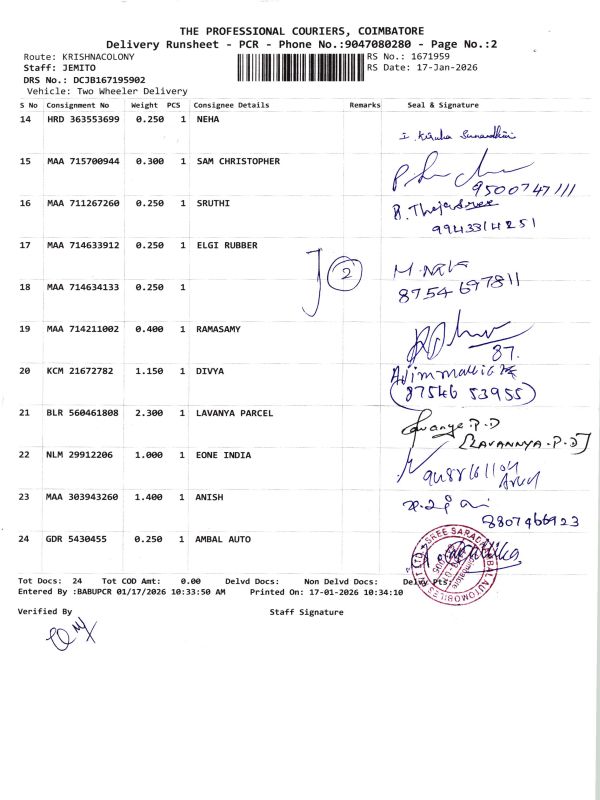 THE PROFESSIONAL COURIERS, COIMBATORE
Delivery Runsheet - PCR - Phone No.:9047080280 - Page No.:2
Route: KRISHNACOLONY RS No.: 1671959
Staff: JEMITO RS Date: 17-Jan-2026
DRS No.: DCJB167195902
Vehicle: Two Wheeler Delivery
S No Consignment No Weight PCS Consignee Details Remarks Seal & Signature
14 HRD 363553699 0.250 1 NEHA
15 MAA 715700944 0.300 1 SAM CHRISTOPHER
9500747111
16 MAA 711267260 0.250 1 SRUTHI B. Thejasree
9943314251
17 MAA 714633912 0.250 1 ELGI RUBBER
2
18 MAA 714634133 0.250 1 8754697811
19 MAA 714211002 0.400 1 RAMASAMY
87.
20 KCM 21672782 1.150 1 DIVYA
(87546 53955)
21 BLR 560461808 2.300 1 LAVANYA PARCEL
[LAVANNYA.P.D]
22 NLM 29912206 1.000 1 EONE INDIA
23 MAA 303943260 1.400 1 ANISH
8807466923
24 GDR 5430455 0.250 1 AMBAL AUTO
Tot Docs: 24 Tot COD Amt: 0.00 Delvd Docs: Non Delvd Docs: Delvy Pts:
Entered By :BABUPCR 01/17/2026 10:33:50 AM Printed On: 17-01-2026 10:34:10
Verified By Staff Signature